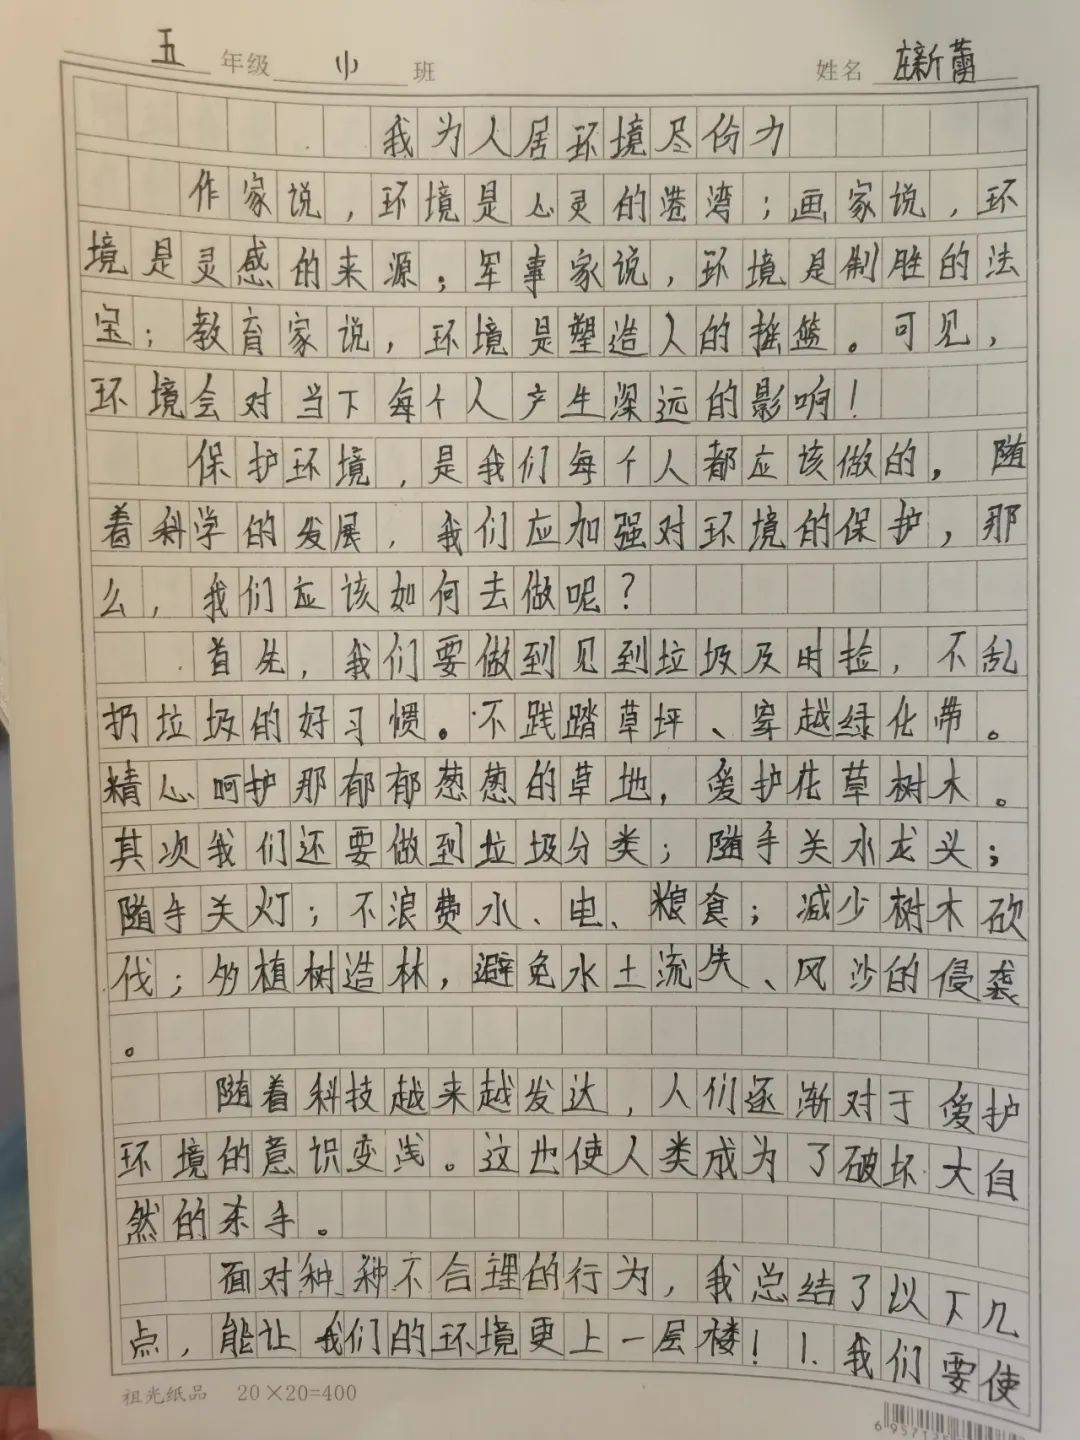 五 年级 小 班 姓名 庄新蕾
我为人居环境尽份力
作家说，环境是心灵的港湾；画家说，环
境是灵感的来源；军事家说，环境是制胜的法
宝；教育家说，环境是塑造人的摇篮。可见，
环境会对当下每个人产生深远的影响！
保护环境，是我们每个人都应该做的，随
着科学的发展，我们应加强对环境的保护，那
么，我们应该如何去做呢？
首先，我们要做到见到垃圾及时捡，不乱
扔垃圾的好习惯。不践踏草坪、穿越绿化带。
精心呵护那郁郁葱葱的草地，爱护花草树木。
其次我们还要做到垃圾分类；随手关水龙头；
随手关灯；不浪费水、电、粮食；减少树木砍
伐；多植树造林，避免水土流失、风沙的侵袭
。
随着科技越来越发达，人们逐渐对于爱护
环境的意识变浅。这也使人类成为了破坏大自
然的杀手。
面对种种不合理的行为，我总结了以下几
点，能让我们的环境更上一层楼！1.我们要使
祖光纸品 20×20=400